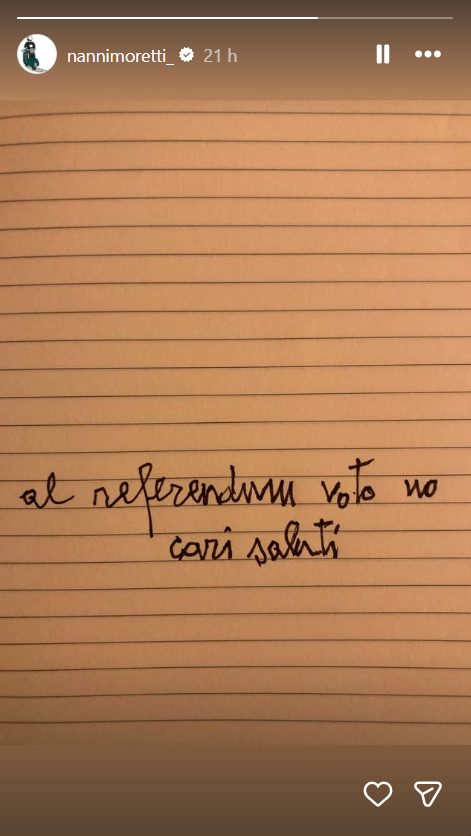 nannimoretti_ 21 h
al referendum voto no
cari saluti